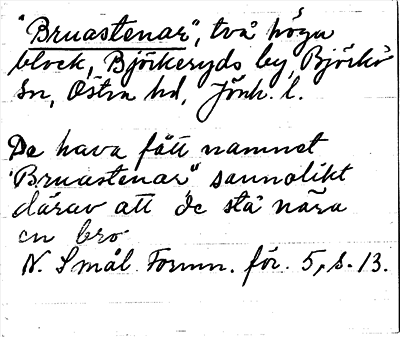 "Bruastenar", två höga
block, Björkeryds by, Björkö
sn, Östra hd, Jönk. l.
De hava fått namnet
"Bruastenar" sannolikt
därav att de stå nära
en bro.
N. Smål. Fornm. för. 5, s. 13.